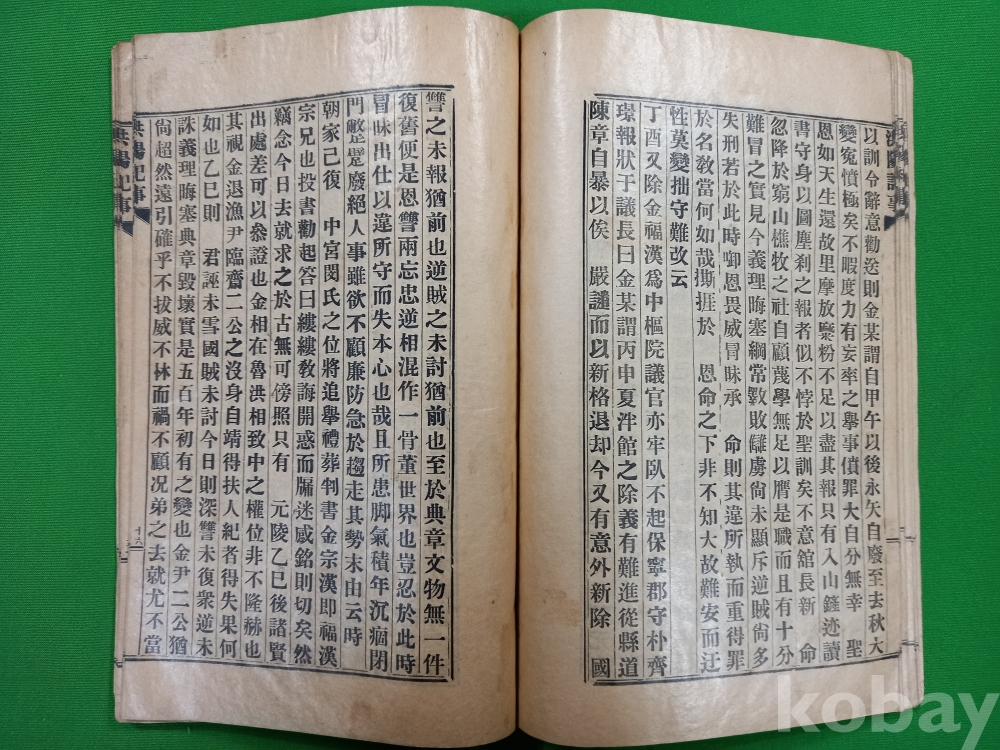 以訓令辭意勸送則金某謂自甲午以後永矢自廢至去秋大
變冤憤極矣不暇度力有妄率之擧事僨罪大自分無幸 聖
恩如天生還故里摩放䊳粉不足以盡其報只有入山鏟迹讀
書守身以圖塵刹之報者似不悖於聖訓矣不意舘長新 命
忽降於窮山樵牧之社自顧蔑學無足以膺是職而且有十分
難冒之實見今義理晦塞綱常斁敗讎虜尙未顯斥逆賊尙多
失刑若於此時啣恩畏威冒昧承 命則其違所執而重得罪
於名敎當何如哉撕捱於 恩命之下非不知大故難安而迂
性莫變拙守難改云
丁酉又除金福漢爲中樞院議官亦牢臥不起保寧郡守朴齊
璟報狀于議長曰金某謂丙申夏泮館之除義有難進從縣道
陳章自暴以俟 嚴譴而以新格退却今又有意外新除 國
讐之未報猶前也逆賊之未討猶前也至於典章文物無一件
復舊便是恩讐兩忘忠逆相混作一骨董世界也豈忍於此時
冒昧出仕以違所守而失本心也哉且所患脚氣積年沉痼閉
門蟄廢絕人事雖欲不顧廉防急於趨走其勢末由云時
朝家已復 中宮閔氏之位將追擧禮葬判書金宗漢即福漢
宗兄也投書勸起答曰縷縷敎誨開惑而牖迷感銘則切矣然
竊念今日去就求之於古無可傍照只有 元陵乙巳後諸賢
出處差可以叅證也金相在魯洪相致中之權位非不隆赫也
其視金退漁尹臨齋二公之沒身自靖得扶人紀者得失果何
如也乙巳則 君誣未雪國賊未討今日則深讐未復衆逆未
誅義理晦塞典章毁壞實是五百年初有之變也金尹二公猶
尙超然遠引確乎不拔威不怵而禍不顧况弟之去就尤不當
洪陽紀事
十六
kobay